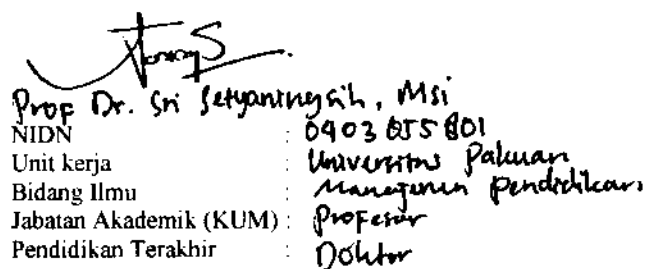 Prof Dr. Sri Setyaningsih, Msi
NIDN : 0403055801
Unit kerja : Universitas Pakuan
Bidang Ilmu : Manajemen Pendidikan
Jabatan Akademik (KUM) : Profesor
Pendidikan Terakhir : Doktor